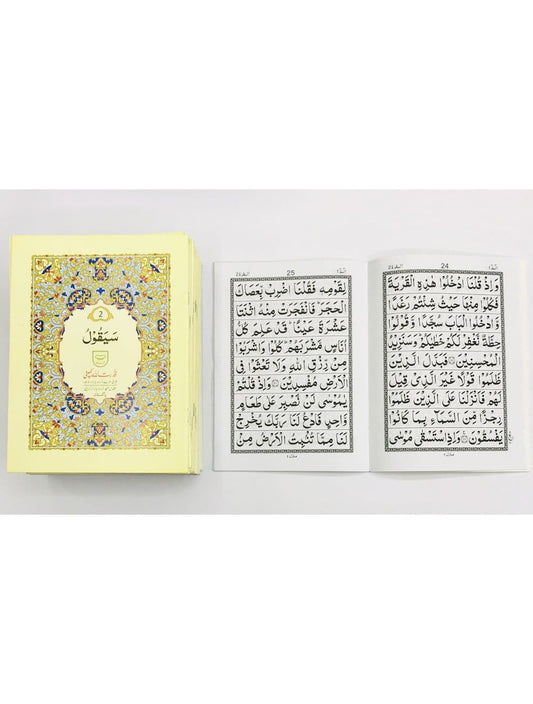 2
سَيَقُوْلُ
24
وَاِذْ قُلْنَا ادْخُلُوْا هٰذِهِ الْقَرْيَةَ
فَكُلُوْا مِنْهَا حَيْثُ شِئْتُمْ رَغَدًا
وَّادْخُلُوا الْبَابَ سُجَّدًا وَّقُوْلُوْا
حِطَّةٌ نَّغْفِرْ لَكُمْ خَطٰيٰكُمْ وَسَنَزِيْدُ
الْمُحْسِنِيْنَ ۝ فَبَدَّلَ الَّذِيْنَ
ظَلَمُوْا قَوْلًا غَيْرَ الَّذِيْ قِيْلَ
لَهُمْ فَاَنْزَلْنَا عَلَى الَّذِيْنَ ظَلَمُوْا
رِجْزًا مِّنَ السَّمَآءِ بِمَا كَانُوْا
يَفْسُقُوْنَ ۝ وَاِذِ اسْتَسْقٰى مُوْسٰى
25
لِقَوْمِهٖ فَقُلْنَا اضْرِبْ بِّعَصَاكَ
الْحَجَرَ ؕ فَانْفَجَرَتْ مِنْهُ اثْنَتَا
عَشْرَةَ عَيْنًا ؕ قَدْ عَلِمَ كُلُّ
اُنَاسٍ مَّشْرَبَهُمْ ؕ كُلُوْا وَاشْرَبُوْا
مِنْ رِّزْقِ اللّٰهِ وَلَا تَعْثَوْا فِى
الْاَرْضِ مُفْسِدِيْنَ ۝ وَاِذْ قُلْتُمْ
يٰمُوْسٰى لَنْ نَّصْبِرَ عَلٰى طَعَامٍ
وَّاحِدٍ فَادْعُ لَنَا رَبَّكَ يُخْرِجْ
لَنَا مِمَّا تُنْۢبِتُ الْاَرْضُ مِنْ